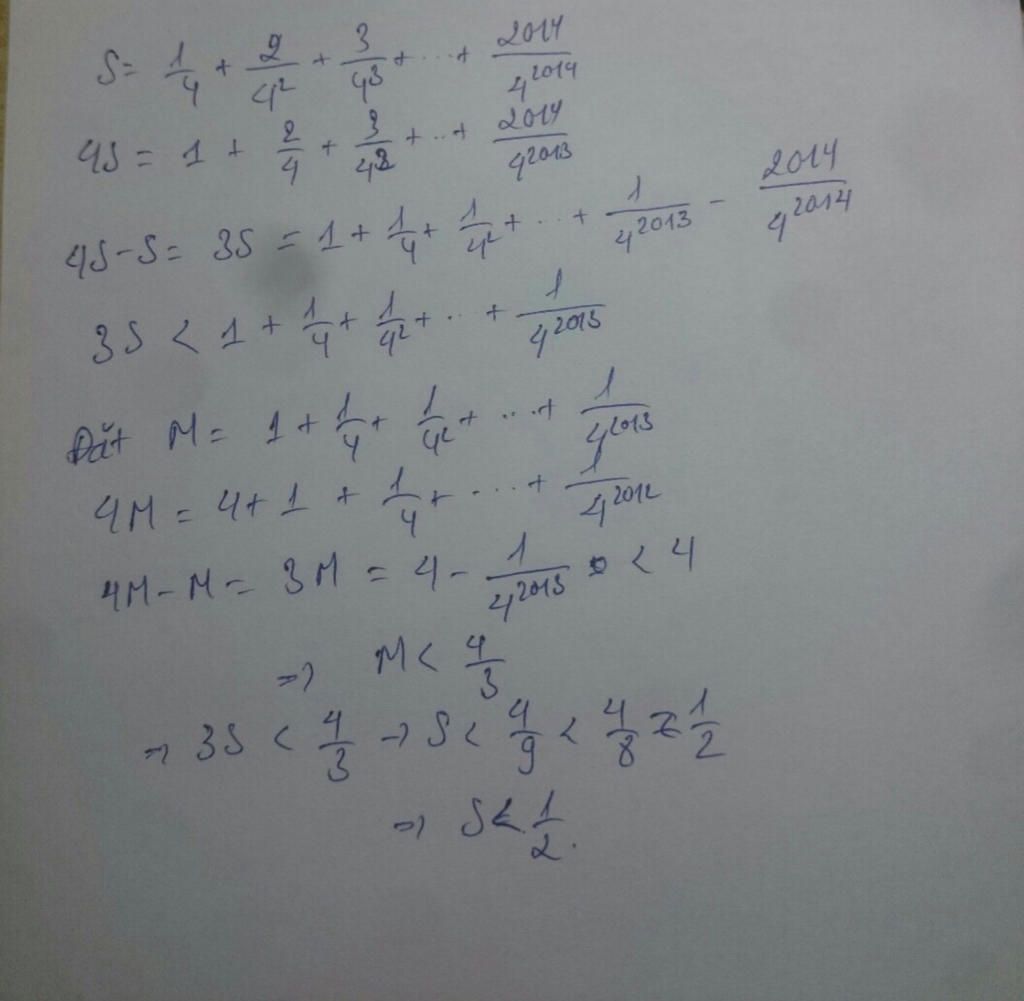 S = 1/4 + 2/4² + 3/4³ + ... + 2014/4²⁰¹⁴
4S = 1 + 2/4 + 3/4² + ... + 2014/4²⁰¹³
4S - S = 3S = 1 + 1/4 + 1/4² + ... + 1/4²⁰¹³ - 2014/4²⁰¹⁴
3S < 1 + 1/4 + 1/4² + ... + 1/4²⁰¹³
Đặt M = 1 + 1/4 + 1/4² + ... + 1/4²⁰¹³
4M = 4 + 1 + 1/4 + ... + 1/4²⁰¹²
4M - M = 3M = 4 - 1/4²⁰¹³ < 4
=> M < 4/3
=> 3S < 4/3 → S < 4/9 < 4/8 = 1/2
=> S < 1/2.